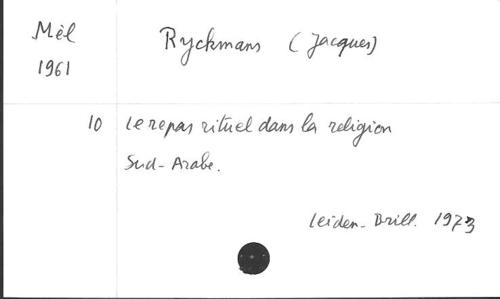 Mèl
1961
Ryckmans (Jacques)
10
Le repas rituel dans la religion
Sud-Arabe.
Leiden-Brill. 1973